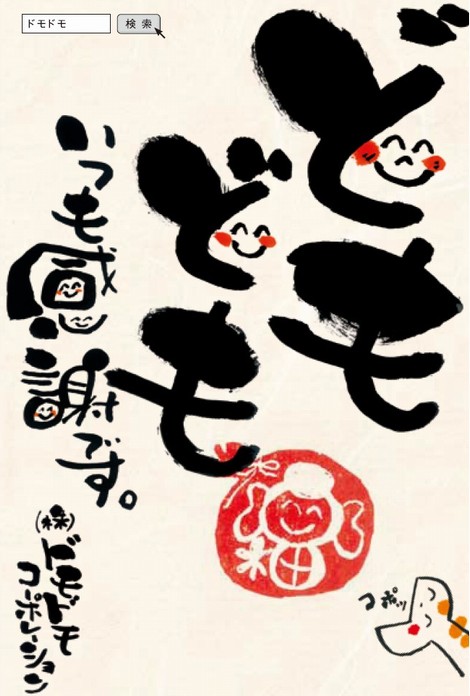 ドモドモ
検索
どもども
いつも感謝です。
(株)ドモドモ
コーポレーション
福
コポッ